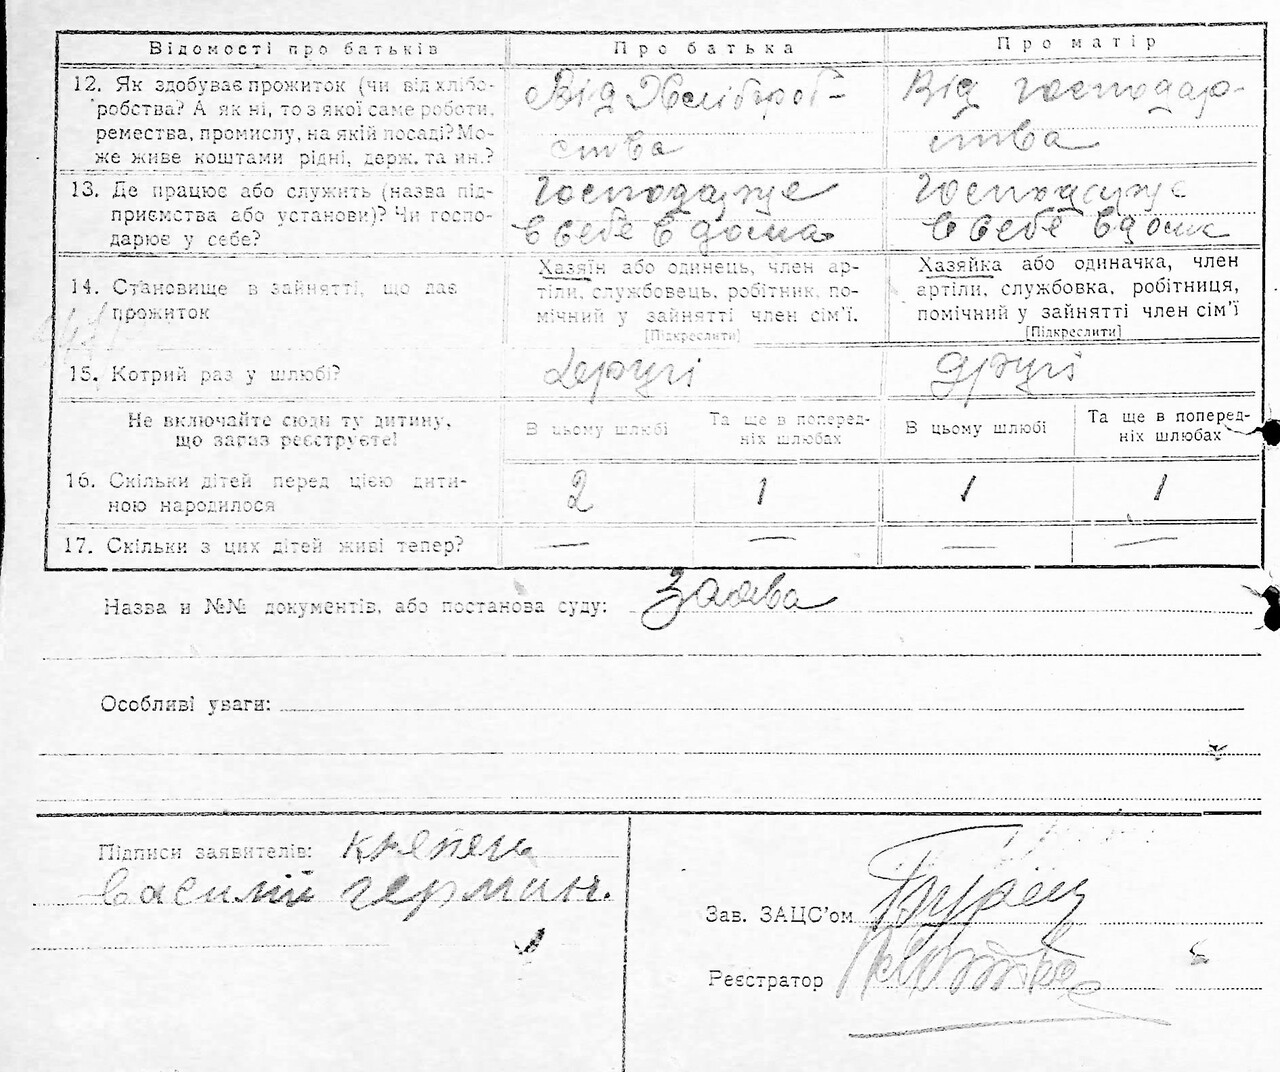 Відомості про батьків
Про батька
Про матір
12. Як здобуває прожиток (чи від хлібо-
робства? А як ні, то з якої саме роботи,
ремества, промислу, на якій посаді? Мо-
же живе коштами рідні, держ. та ин.?
Від Хлібороб-
ства
Від господар-
ства
13. Де працює або служить (назва під-
приємства або установи)? Чи госпо-
дарює у себе?
Господарює
в себе вдома
Господарює
в себе вдома
14. Становище в зайнятті, що дає
прожиток
Хазяїн або одинець, член ар-
тіли, службовець, робітник, по-
мічний у зайнятті член сім’ї.
[Підкреслити]
Хазяйка або одиначка, член
артіли, службовка, робітниця,
помічний у зайнятті член сім’ї
[Підкреслити]
15. Котрий раз у шлюбі?
Другі
другі
Не включайте сюди ту дитину,
що зараз реєструєте!
В цьому шлюбі
Та ще в поперед-
ніх шлюбах
В цьому шлюбі
Та ще в поперед-
ніх шлюбах
16. Скільки дітей перед цією дити-
ною народилося
2
1
1
1
17. Скільки з цих дітей живі тепер?
—
—
—
—
Назва и №№ документів, або постанова суду: Заява
Особливі уваги:
Підписи заявителів:
Василій
Зав. ЗАЦС’ом
Реєстратор